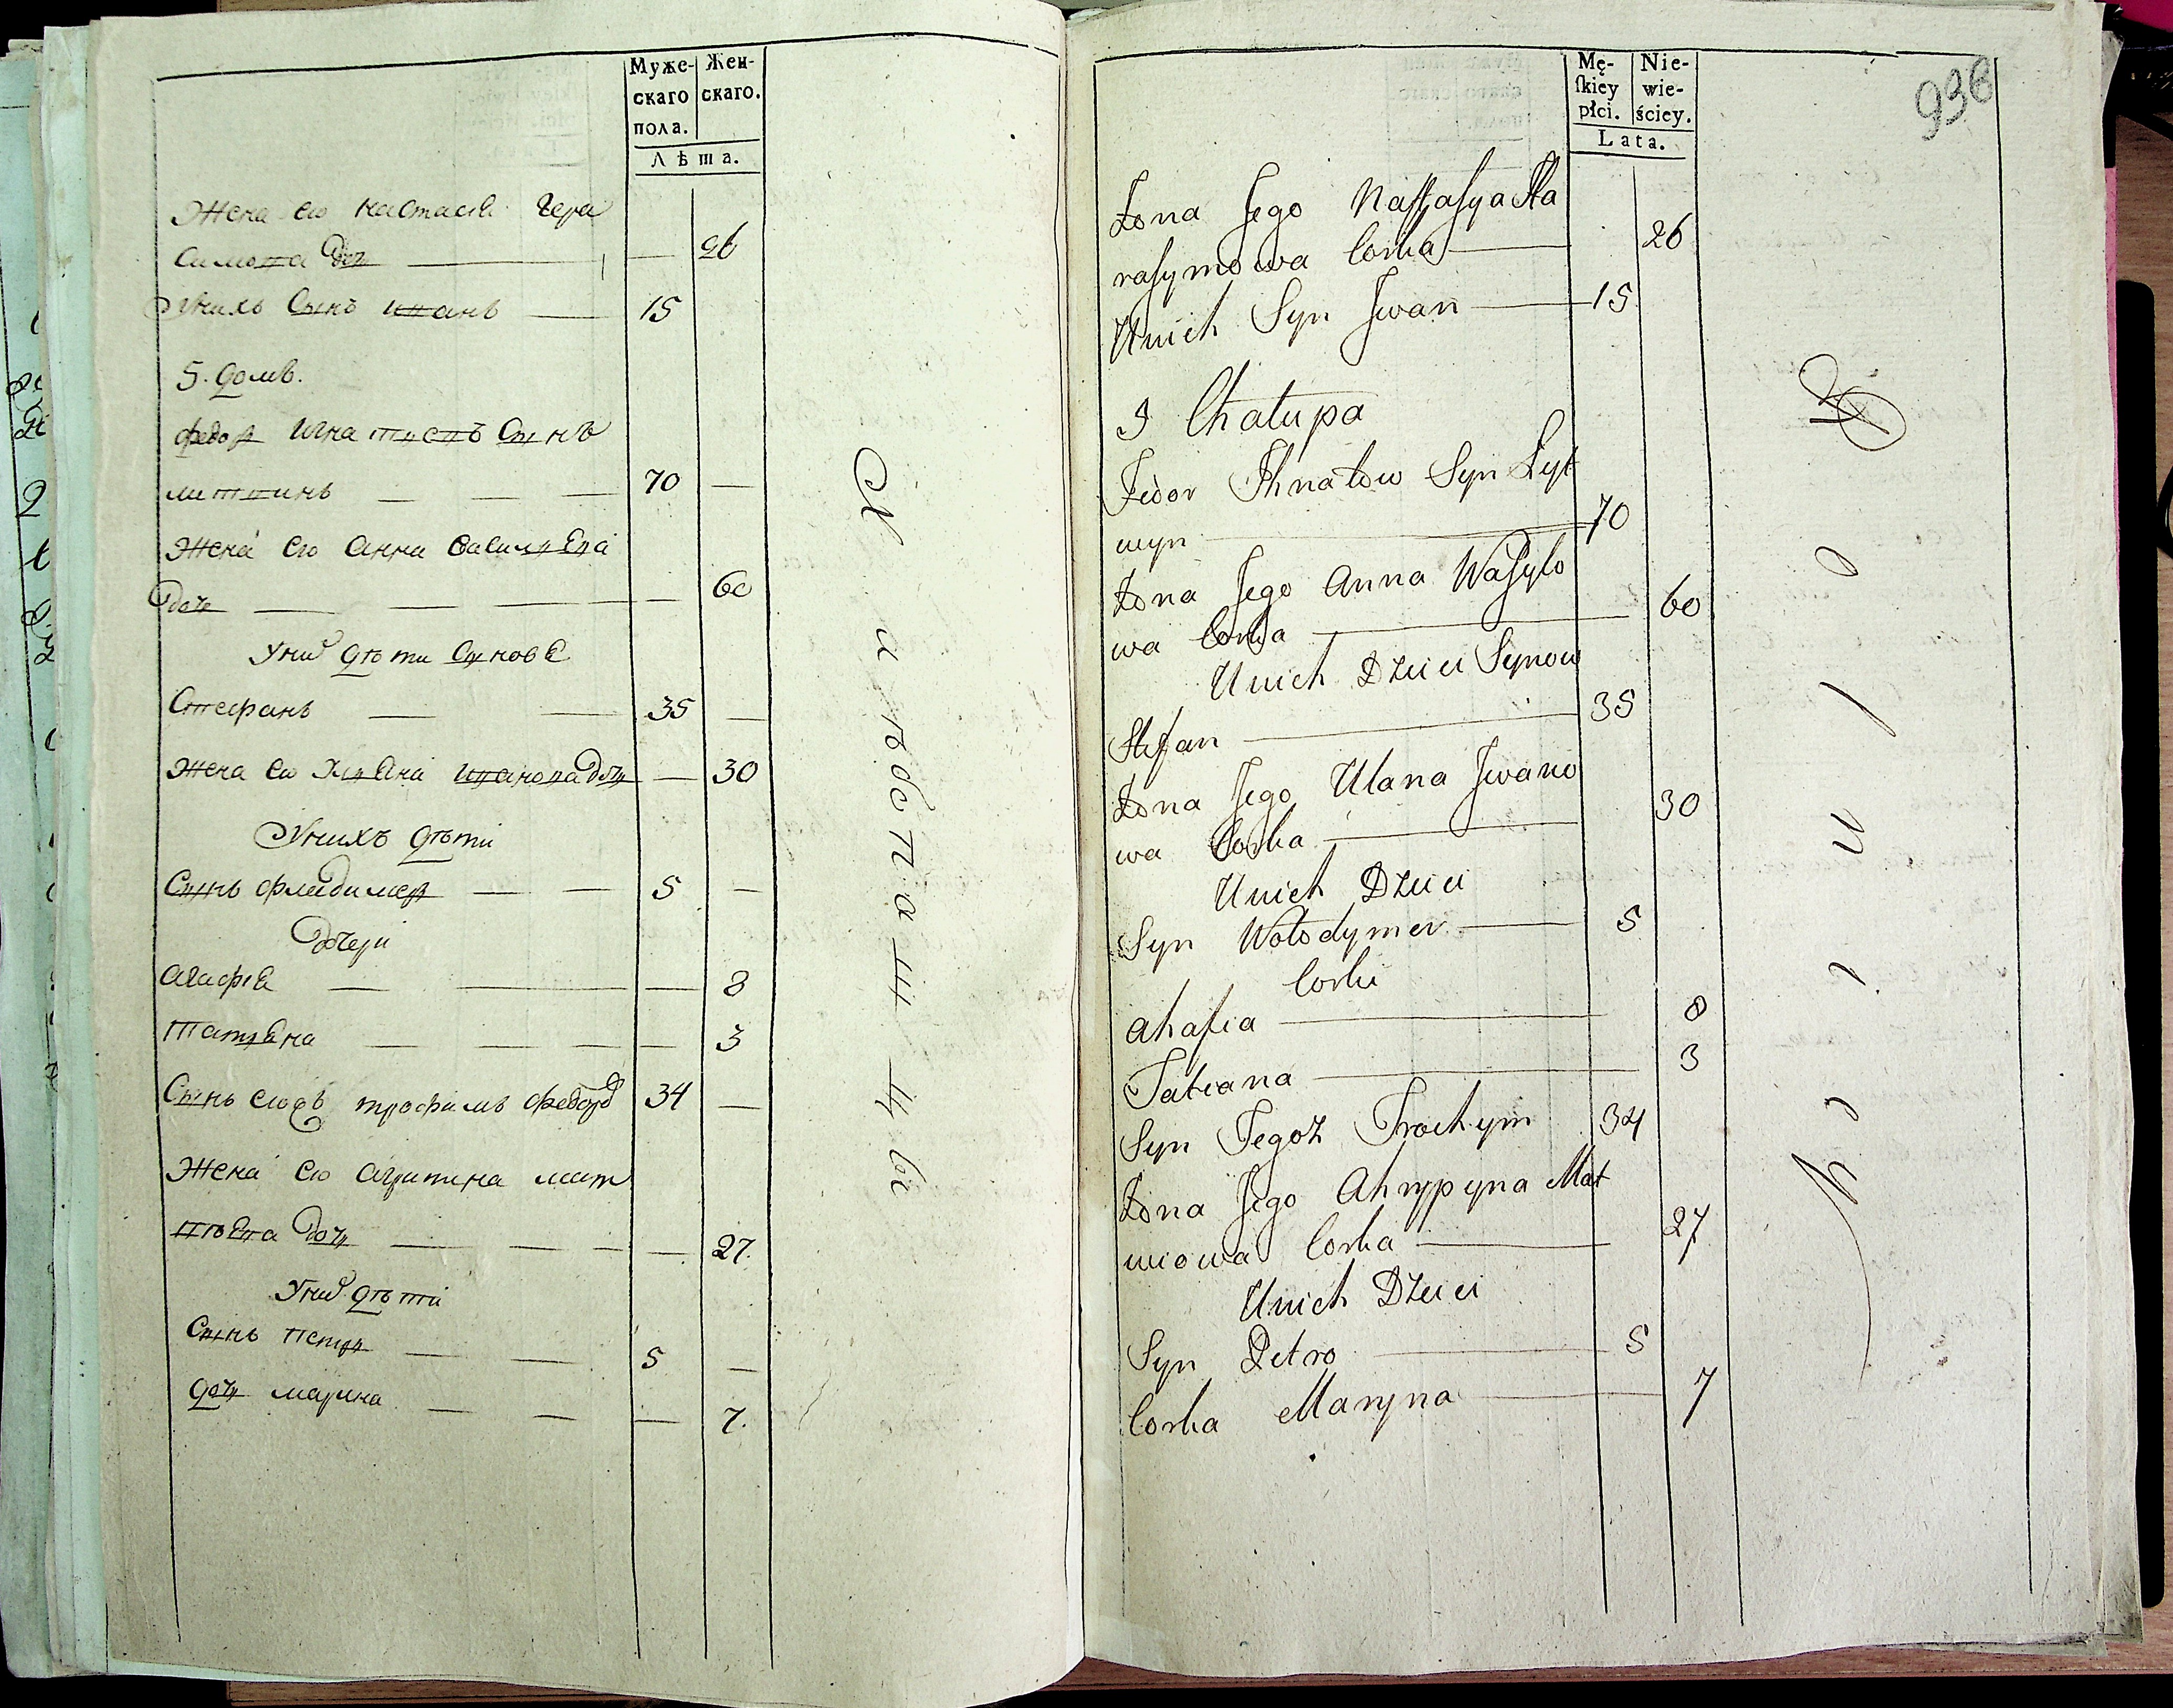 Муже- Жен-
скаго скаго.
пола.
Лѣта.
Жена его настасія Гера
симова дочь — 26
Унихъ Сынъ иванъ — 15
5. домъ.
федор Игнатувъ Сынъ
литвинъ — 70 —
Жена его Анна василѣва
дочь — 60
Уних дѣти Сыновѣ
Стефанъ — 35 —
жена его Улѣана иванова дочь — 30
Унихъ дѣти
Сынъ флидимер — 5 —
дочери
агафія — 8
татѣяна — 3
Сынъ егожъ трофимъ федор 34 —
Жена его агрипина мат
вѣева дочь — 27.
Уних дѣти
Сынъ петр — 5 —
дочь марина — 7.
Mę- Nie-
ſkiey wie-
płci. ściey.
Lata.
936
Żona Jego Naſtaſya Ha
raſymowa Corka — 26
Unich Syn Jwan — 15
5 Chałupa
Fedor Ihnatow Syn Lyt
wyn — 70
Żona Jego Anna Waſylo
wa Corka — 60
Unich Dzieci Synow
Stefan — 35
Żona Jego Ulana Jwano
wa Corka — 30
Unich Dzieci
Syn Wołodymer — 5
Corki
Ahafia — 8
Tatiana — 3
Syn Tegoż Trochym 34
Żona Jego Ahrypyna Mat
wiowa Corka — 27
Unich Dzieci
Syn Petro — 5
Corka Maryna — 7